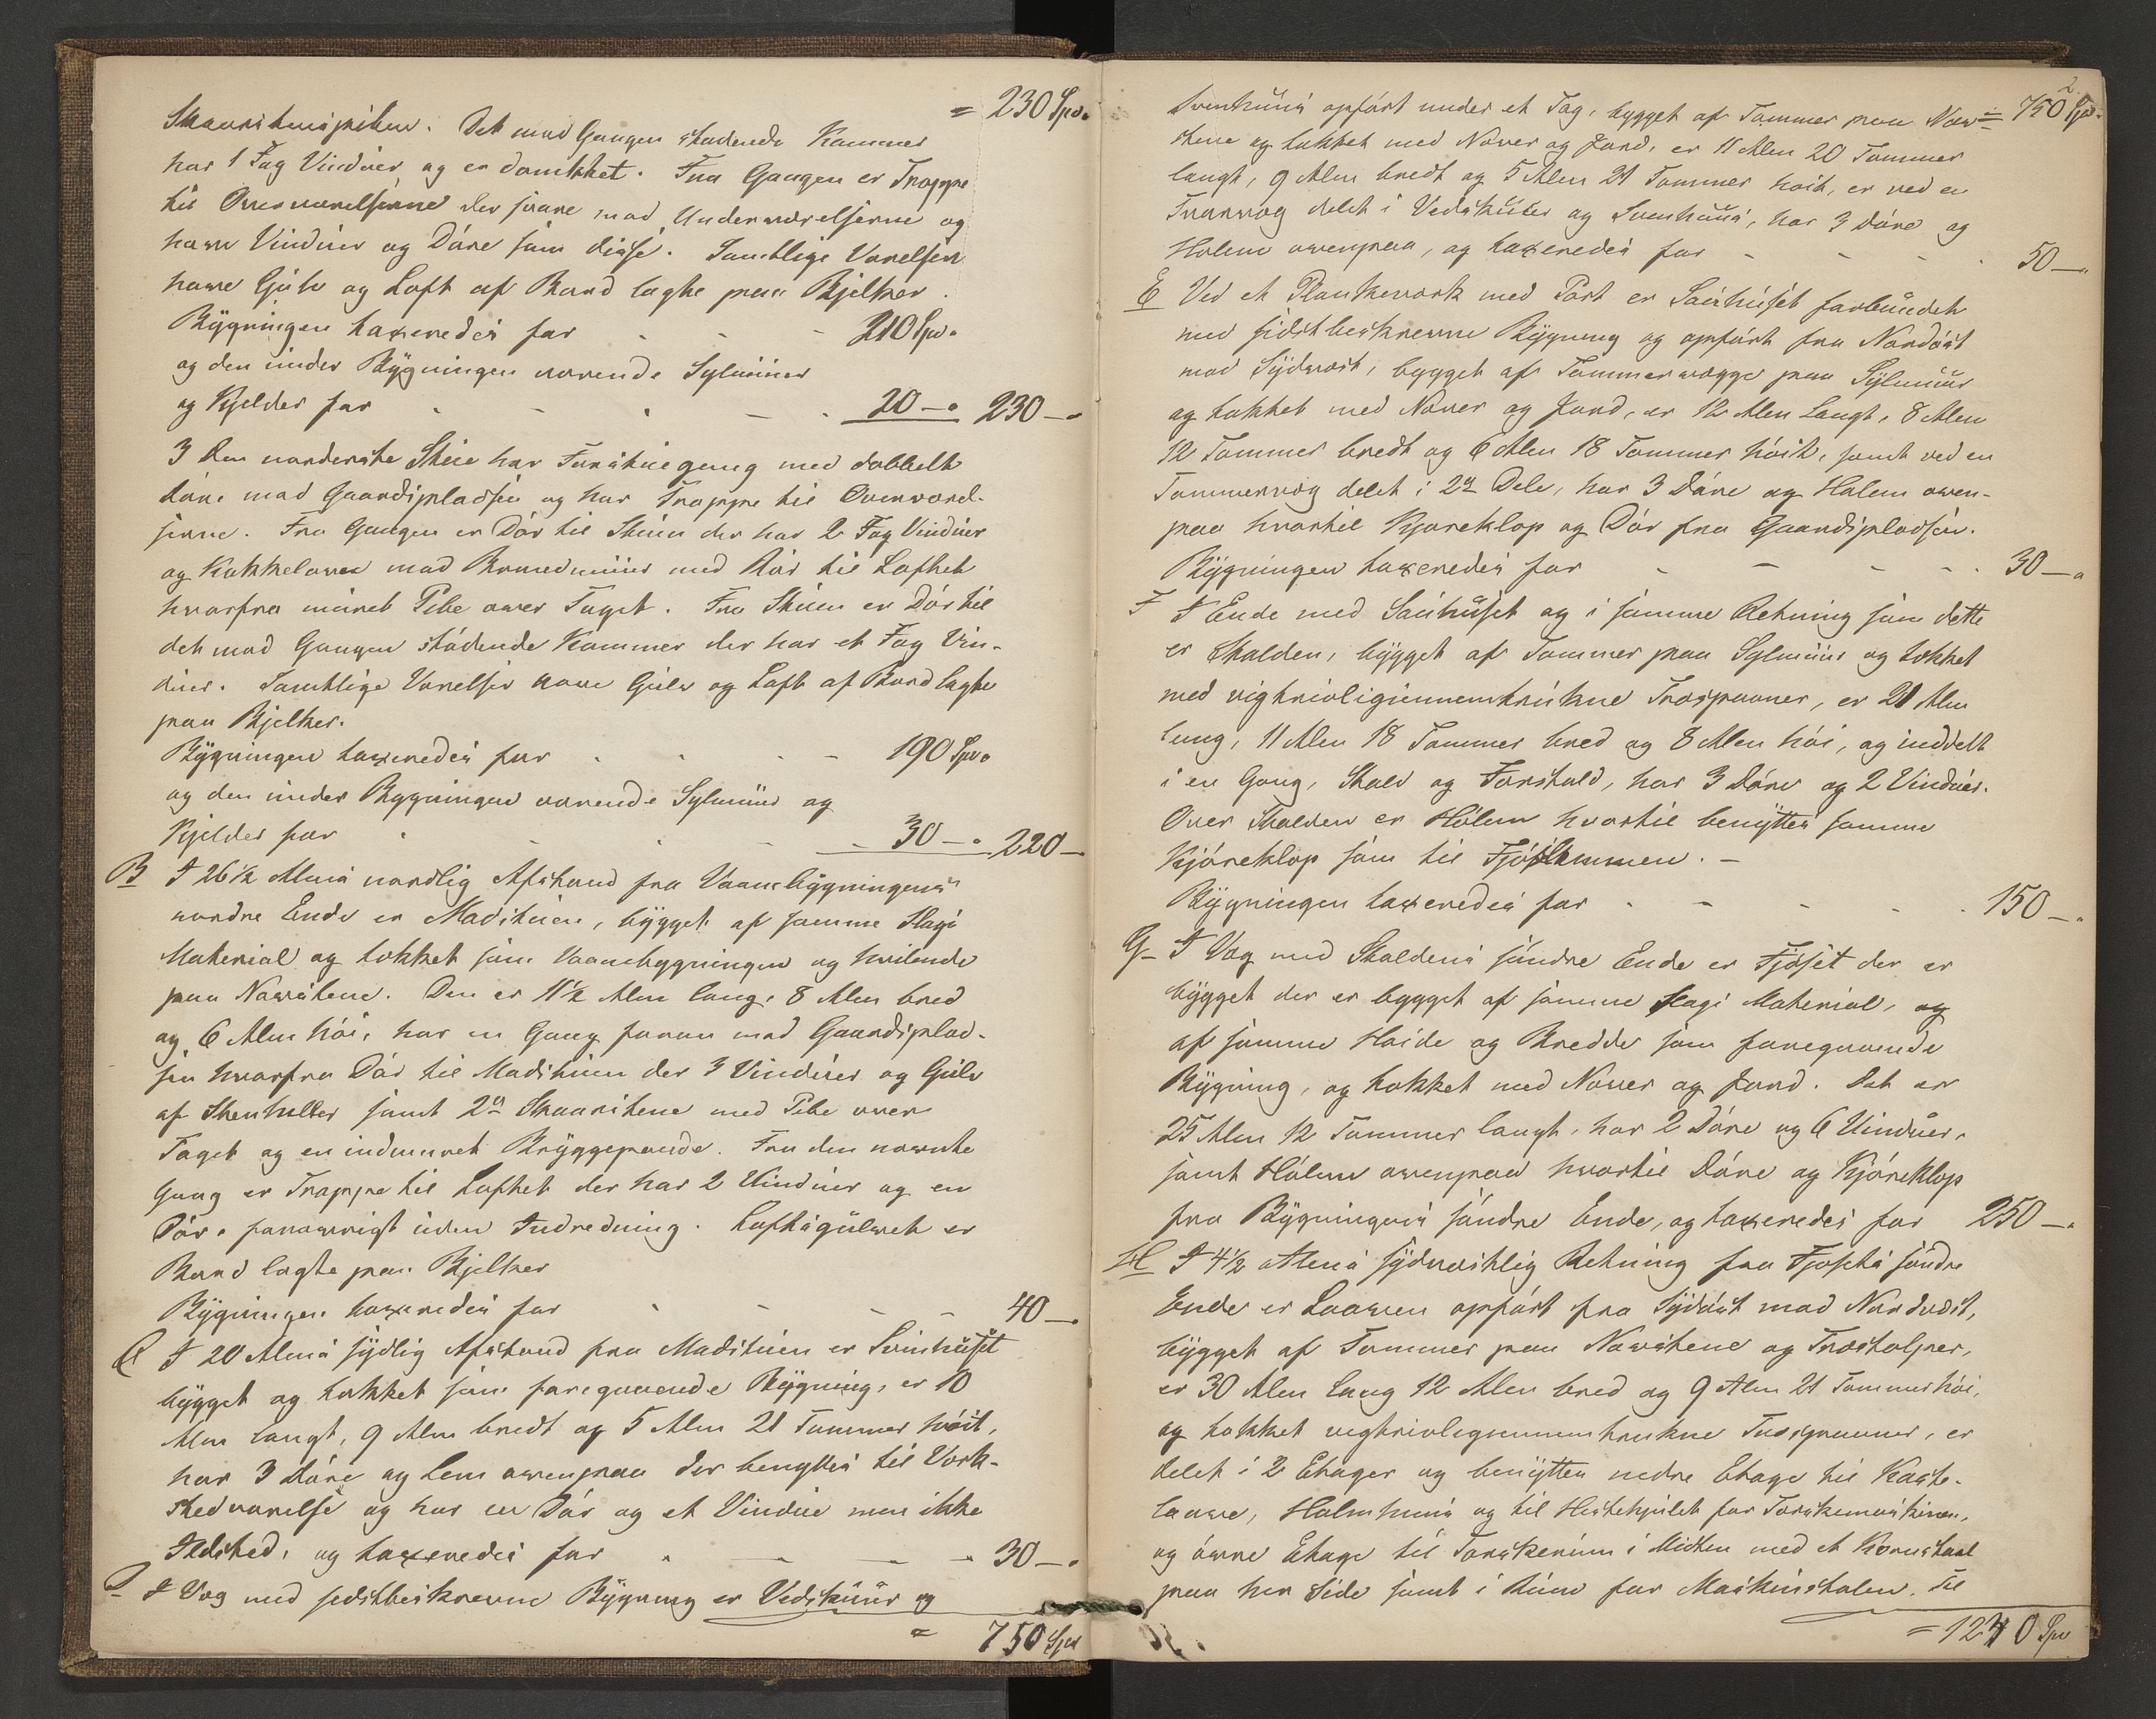 = 230 Spd.
Skaarstenspiben. Det mod Gangen stødende Kammer
har 1 Fag Vinduer og er dørløst. Fra Gangen er Trappe
til Overværelserne der svare mod Underværelserne og
have Vinduer og Døre som disse. Samtlige Værelser
have Gulv og Loft af Bord lagte paa Bjelker.
Bygningen taxeredes for - - - 210 Spd.
og den under Bygningen værende Sylmuur
og Kjelder for - - - 20 —" 230 —"
3 Den nordenste Stue har Forstuegang med dobbelt
Døre mod Gaardspladsen og har Trappe til Overværel-
serne. Fra Gangen er Dør til Stuen der har 2 Fag Vinduer
og Kakkelovn mod Brandmuur med Rør til Loftet
hvorfra muret Pibe over Taget. Fra Stuen er Dør til
det mod Gangen stødende Kammer der har et Fag Vin-
duer. Samtlige Værelser have Gulv og Loft af Bord lagte
paa Bjelker.
Bygningen taxeredes for - - - 190 Spd.
og den under Bygningen værende Sylmuur og
Kjelder for - - - 30 —" 220 —
B I 26½ Alens nordlig Afstand fra Vaanebygningens
nordre Ende er Madstuen, bygget af samme Slags
Material og tækket som Vaanebygningen og hvilende
paa Navstene. Den er 11½ Alen lang, 8 Alen bred
og 6 Alen høi, har en Gang foran mod Gaardsplad-
sen hvorfra Dør til Madstuen der 3 Vinduer og Gulv
af Steenheller samt 2de Skaarstene med Pibe over
Taget og en indmuret Bryggepande. Fra den nævnte
Gang er Trappe til Loftet der har 2 Vinduer og en
Dør, forøvrigt uden Indredning. Loftsgulvet er
Bord lagte paa Bjelker
Bygningen taxeredes for - - - 40 —"
C I 20 Alens sydlig Afstand fra Madstuen er Sviinhuset
bygget og tækket som foregaaende Bygning, er 10
Alen langt, 9 Alen bredt og 5 Alen 21 Tommer høit,
har 3 Døre og Lem ovenpaa der benyttes til Værk-
stedværelse og har en Dør og et Vindue men ikke
Ildsted, og taxeredes for - - - 30 —"
D I Væg med sidstbeskrevne Bygning er Vedskuur og
= 750 Spd
2.
Sviinhuus opført under et Tag, bygget af Tømmer paa Nav- = 750 Spd.
stene og tækket med Næver og Jord, er 11 Alen 20 Tommer
langt, 9 Alen bredt og 5 Alen 21 Tommer høit, er ved en
Tværvæg delet i Vedskuur og Sviinhuus, har 3 Døre og
Holem ovenpaa, og taxeredes for - - - 50 —"
E Ved et Plankeværk med Port er Sauhuset forbundet
med sidstbeskrevne Bygning og opført fra Nordøst
mod Sydvest, bygget af Tømmervægge paa Sylmuur
og tækket med Næver og Jord, er 12 Alen langt, 8 Alen
12 Tommer bredt og 6 Alen 18 Tommer høit, samt ved en
Tømmervæg delet i 2de Dele, har 3 Døre og Holem oven-
paa hvortil Kjøreklop og Dør fra Gaardspladsen.
Bygningen taxeredes for - - - 30 —"
F I Ende med Sauhuset og i samme Retning som dette
er Stalden, bygget af Tømmer paa Sylmuur og tækket
med vigtrioligjennemtrukne Træspaaner, er 21 Alen
lang, 11 Alen 18 Tommer bred og 8 Alen høi, og inddelt
i en Gang, Stald og Forstald, har 3 Døre og 2 Vinduer.
Over Stalden er Hølem hvortil benyttes samme
Kjøreklop som til Fjøslemmen. -
Bygningen taxeredes for - - - 150 —"
G I Væg med Staldens søndre Ende er Fjøset der er
bygget der er bygget af samme Slags Material, og
af samme Høide og Bredde som foregaaende
Bygning, og tækket med Næver og Jord. Det er
25 Alen 12 Tommer langt, har 2 Døre og 6 Vinduer,
samt Hølem ovenpaa hvortil Døre og Kjøreklop
fra Bygningens søndre Ende, og taxeredes for 250 —"
H I 4½ Alens sydvestlig Retning fra Fjøsets søndre
Ende er Laaven opført fra Sydøst mod Nordvest,
bygget af Tømmer paa Navstene og Træstolper,
er 30 Alen lang 12 Alen bred og 9 Alen 21 Tommer høi,
og tækket vigtrioligjennemtrukne Træspaaner, er
delet i 2 Etager og benyttes nedre Etage til Kaste-
laave, Halmhuus og til Hestehjulet for Tærskemaskinen,
og øvre Etage til Tærskeruum i Midten med et Kornstaal
paa hver Side samt i Ruum for Maskinstalen. Til
= 1230 Spd